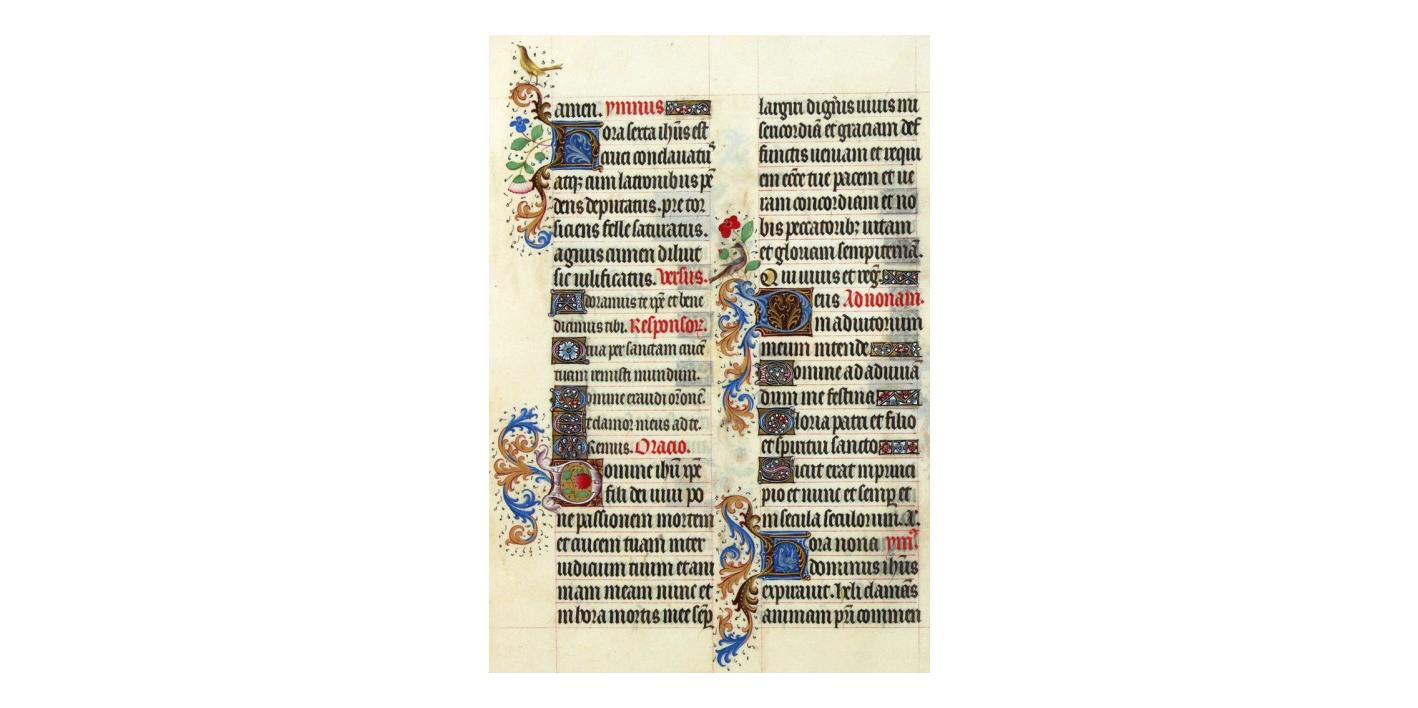 amen. ymnus
Hora sexta ihūs est
cruci conclauatus
atqꝫ cum latronibus pē
dens deputatus. pre tor
siciens felle saturatus.
agnus crimen diluit
sic iustificatus. Versus.
Adoramus te xpē et bene
dicimus tibi. Responsor̄.
Quia per sanctam crucē
tuam remisti mundum.
Domine exaudi or̄onē.
Et clamor meus ad te.
Oremus. Oracio.
Domine ihū xpē
fili dei uiui po
ne passionem mortem
et crucem tuam inter
iudicium tuum et ani
mam meam nunc et
in hora mortis mee sēp
largiri digneris uiuis mi
sericordiā et graciam def
functis ueniam et requi
em ecc̄e tue pacem et ue
ram concordiam et no
bis peccatoribꝫ uitam
et gloriam sempiternā.
Qui uiuis et reḡ.
Deus Ad nonam.
in adiutorium
meum intende
Domine ad adiuuā
dum me festina
Gloria patri et filio
et spiritui sancto
Sicut erat in princi
pio et nunc et semp̄ et
in secula seculorum. A.
Hora nona ym̄.
dominus ihūs
expirauit. hely clamās
animam pr̄i commen